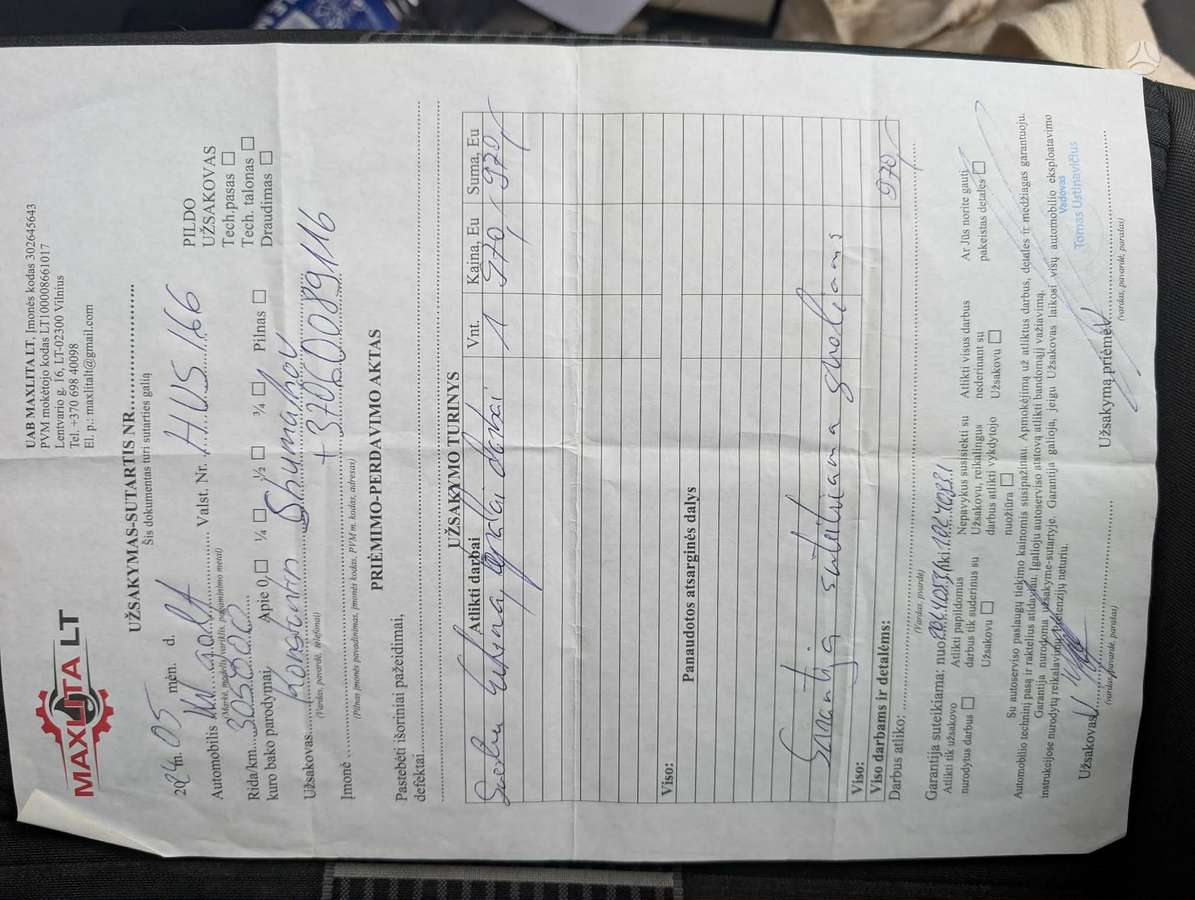 MAXLITA LT
UAB MAXLITA LT, Įmonės kodas 302645643
PVM mokėtojo kodas LT100008661017
Lentvario g. 16, LT-02300 Vilnius
Tel. +370 698 40098
El. p.: maxlitalt@gmail.com
UŽSAKYMAS-SUTARTIS NR.
Šis dokumentas turi sutarties galią
2024 m. 05 mėn. d.
Automobilis Valst. Nr. HUS 166
(Markė, modelis, variklis, pagaminimo metai)
Rida/km. 305300
kuro bako parodymai Apie 0, ☐ ¼ ☐ ½ ☐ ¾ ☐ Pilnas ☐
PILDO
UŽSAKOVAS
Tech.pasas ☐
Tech. talonas ☐
Draudimas ☐
Užsakovas Shumakov +37060089116
(Vardas, pavardė, telefonai)
Įmonė
(Pilnas įmonės pavadinimas, įmonės kodas, PVM m. kodas, adresas)
PRIĖMIMO-PERDAVIMO AKTAS
Pastebėti išoriniai pažeidimai,
defektai
UŽSAKYMO TURINYS
Atlikti darbai Vnt. Kaina, Eu Suma, Eu
darbai 1 970,- 970,-
Viso:
Panaudotos atsarginės dalys
Garantija suteikiama guoliams
Viso:
Viso darbams ir detalėms: 970,-
Darbus atliko:
(Vardas, pvardė)
Garantija suteikiama: nuo iki
Atlikti tik užsakovo nurodytus darbus ☐
Atlikti papildomus darbus tik suderinus su Užsakovu ☐
Nepavykus susisiekti su Užsakovu, reikalingus darbus atlikti vykdytojo nuožiūra ☐
Atlikti visus darbus nederinant su Užsakovu ☐
Ar Jūs norite gauti pakeistas detales ☐
Su autoserviso paslaugų tiekimo kainomis susipažinau. Apmokėjimą už atliktus darbus, detales ir medžiagas garantuoju.
Automobilio techninį pasą ir raktelius atidaviau. Įgalioju autoserviso atstovą atlikti bandomąjį važiavimą.
Garantija nurodoma užsakyme-sutartyje. Garantija galioja, jeigu Užsakovas laikosi visų automobilio eksploatavimo
instrukcijose nurodytų reikalavimų. Pretenzijų neturiu.
Užsakovas
(vardas, pavardė, parašas)
Užsakymą priėmė
Vadovas
Tomas Ustinavičius
(vardas, pavardė, parašas)